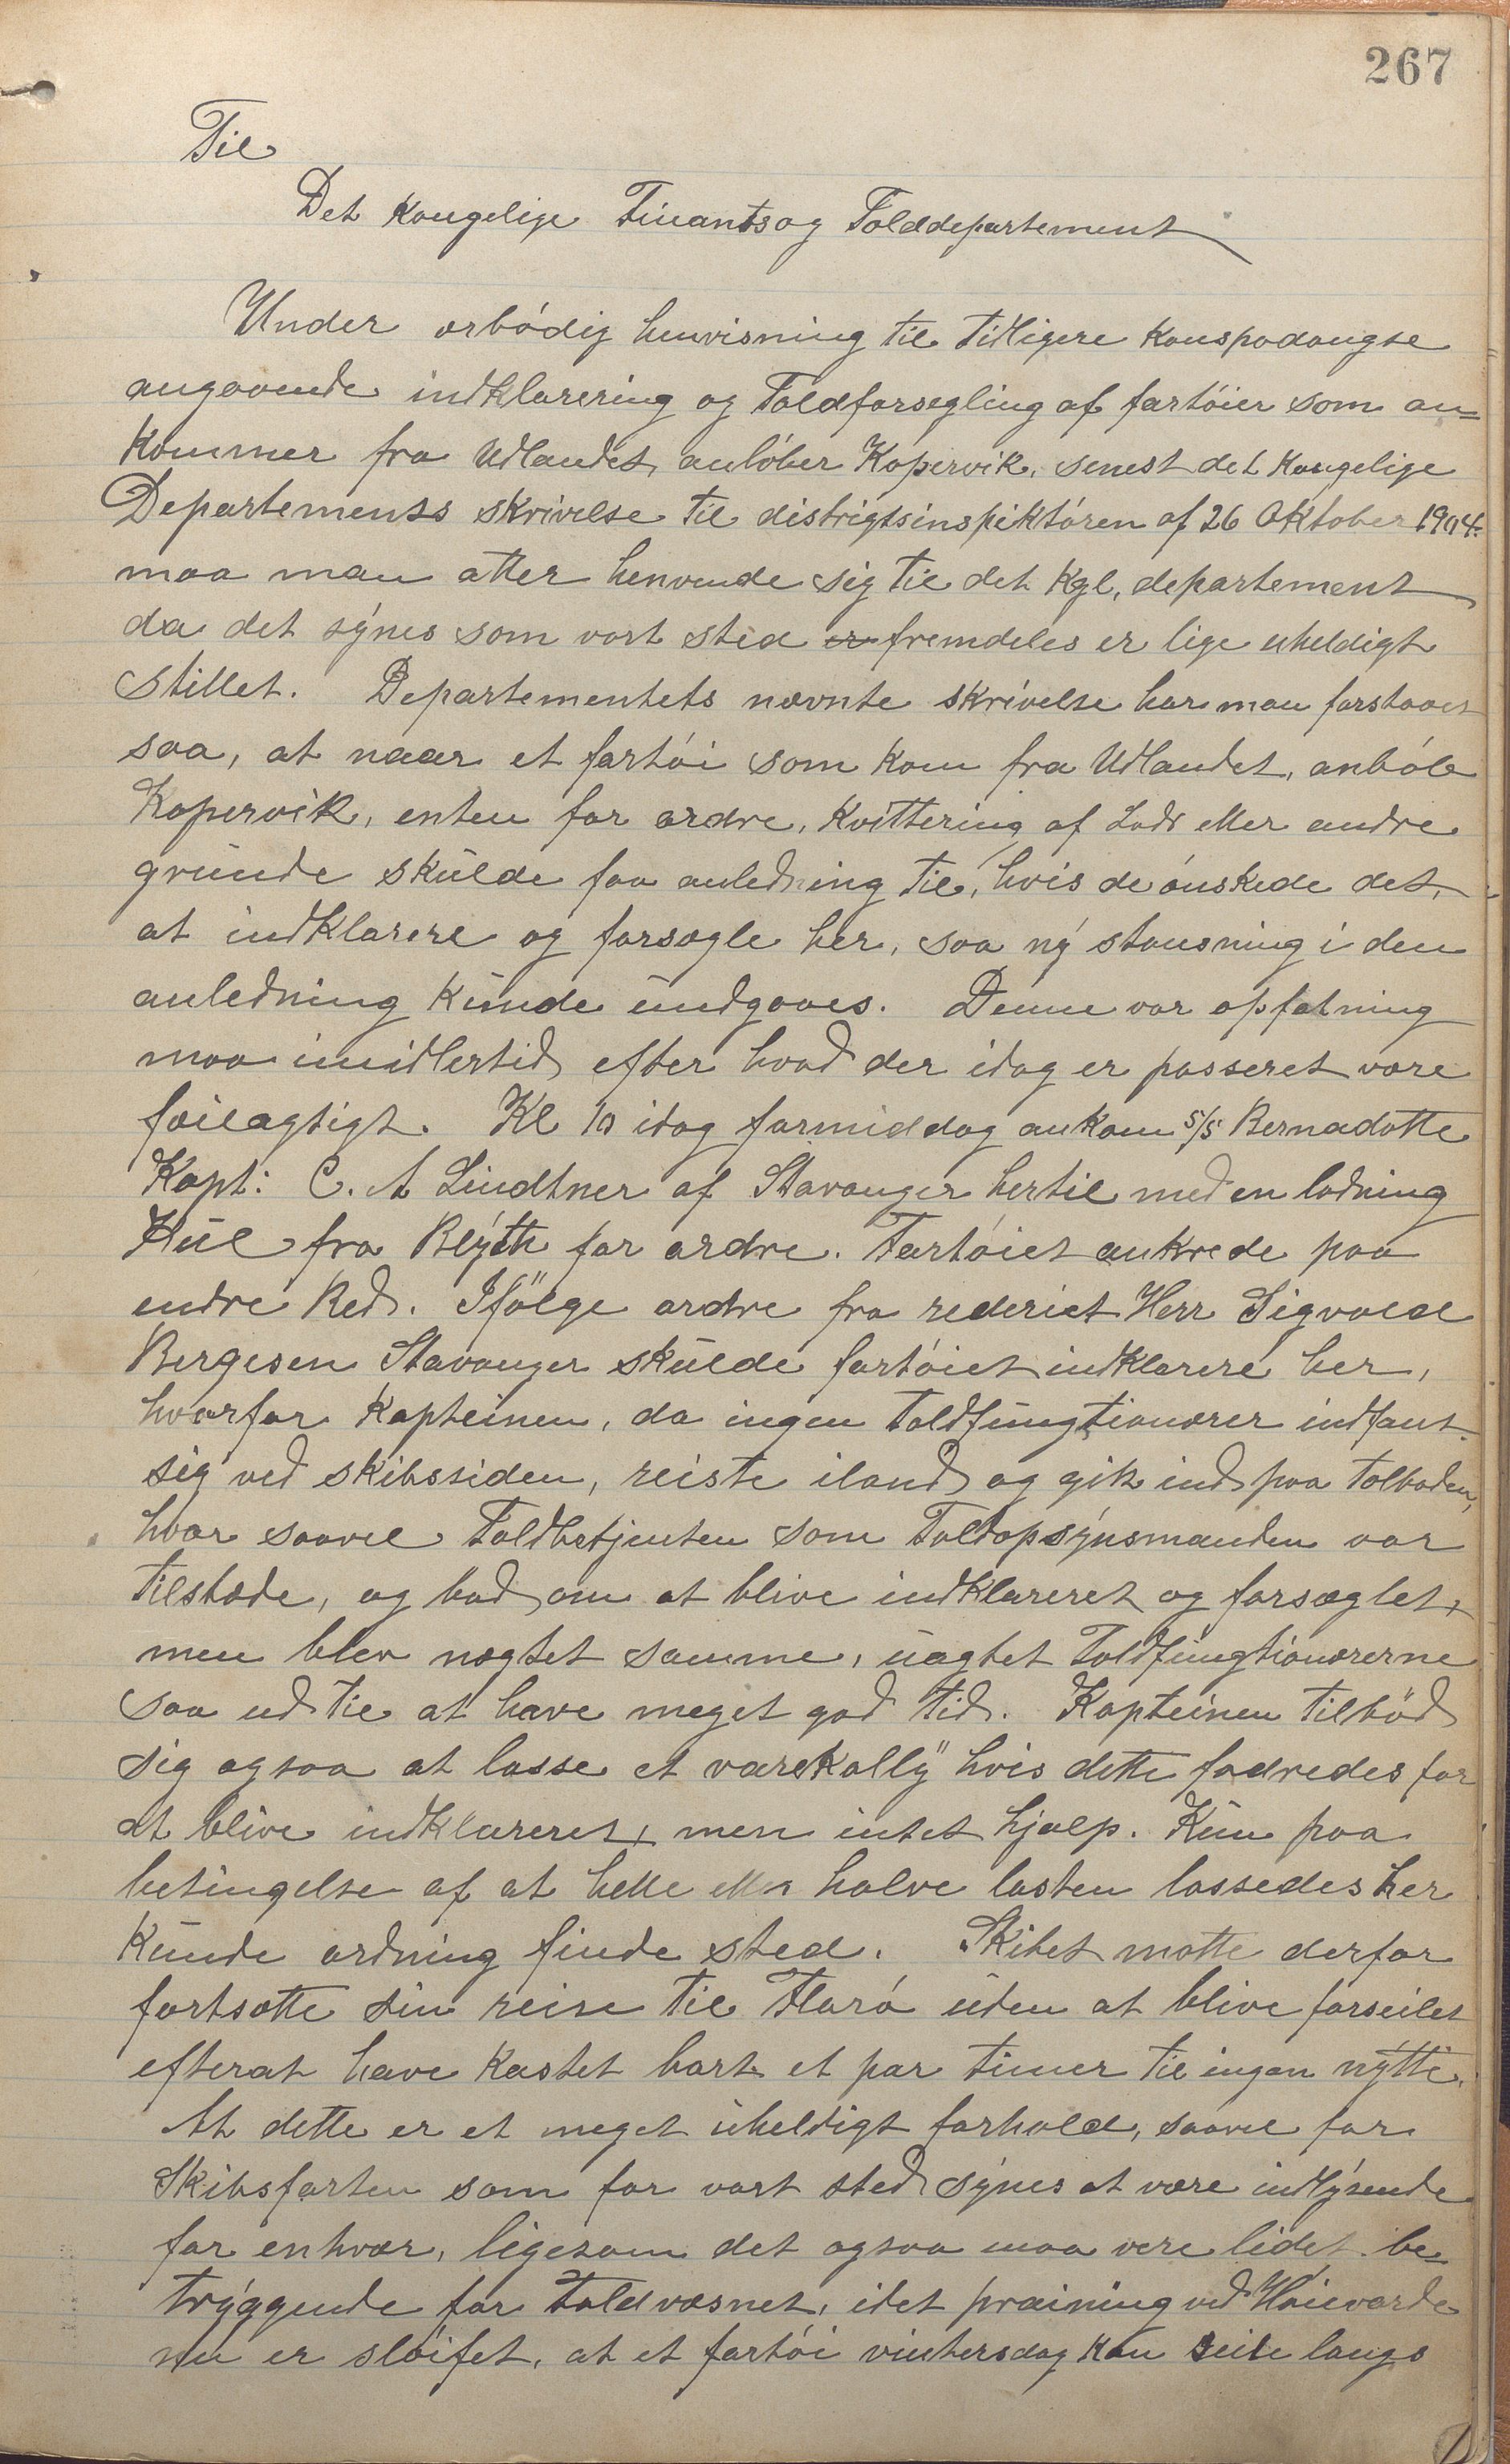 267
Til
Det kongelige Finants og Tolddepartement
Under ærbödig henvisning til tidligere konspodangse
angaaende indklarering og Toldforsegling af fartöier som an=
kommer fra Udlandet, anlöber Kopervik, senest det kongelige
Departemenss skrivelse til distrigtsinspiktören af 26 Oktober 1904.
maa man atter henvende sig til det kgl, departement
da det synes som vort sted er fremdeles er lige uheldigt
stillet. Departementets nævnte skrivelse har man forstaaet
saa, at naar et fartöi som kom fra Udlandet, anlöb
Kopervik, enten for ordre, kvittering af Lods eller andre
grunde skulde faa anledning til, hvis de önskede det,
at indklarere og forsegle her, saa ny stansning i den
anledning kunde undgaaes. Denne vor opfatning
maa imidlertid efter hvad der idag er passeret være
feilagtigt. Kl 10 idag formiddag ankom S/S Bernadotte
Kapt: C. A Lindtner af Stavanger hertil med en ladning
Kul fra Blyth for ordre. Fartöiet ankrede paa
indre Red. Ifölge ordre fra rederiet Herr Sigvald
Bergesen Stavanger skulde fartöiet indklarere her,
hvorfor kapteinen, da ingen toldfungtionærer indfant
sig ved skibssiden, reiste iland og gik ind paa tolboden,
hvor saavel Toldbetjenten som Toldopsynsmanden var
tilstede, og bad om at blive indklareret og forsæglet,
men blev nægtet samme, uagtet Toldfungtionærerne
saa ud til at have meget god tid. Kapteinen tilböd
sig ogsaa at losse et varekolly hvis dette fodredes for
at blive indklareret, men intet hjalp. Kun paa
betingelse af at hele eller halve lasten lossedes her
kunde ordning finde sted. Skibet motte derfor
fortsætte sin reise til Florö uden at blive forseilet
efterat have kastet bort et par timer til ingen nytte.
At dette er et meget uheldigt forhold, saavel for
Skibsfarten som for vort sted synes at være indlysende
for enhvær, ligesom det ogsaa maa vere lidet be=
tryggende for toldvæsnet, idet praining ved Höievarde
nu er slöifet, at et fartöi vintersdag kan seile langs